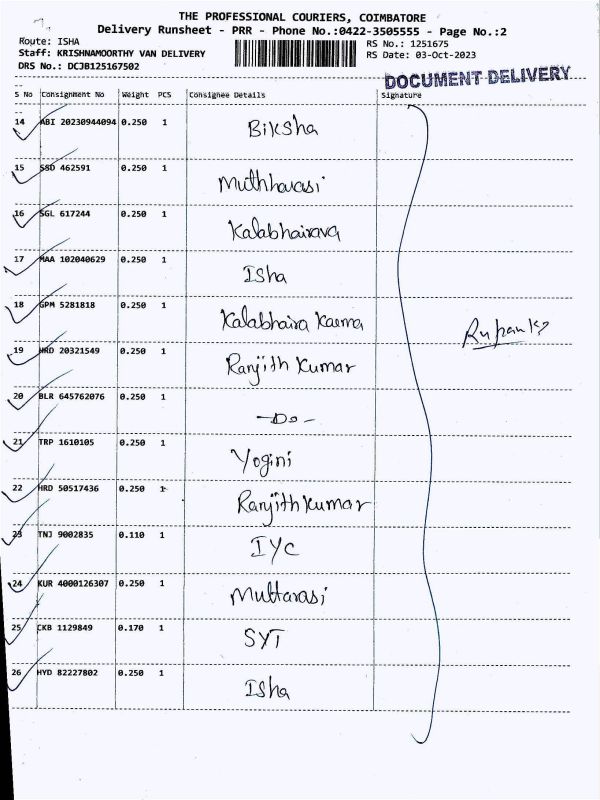 THE PROFESSIONAL COURIERS, COIMBATORE
Delivery Runsheet - PRR - Phone No.:0422-3505555 - Page No.:2
Route: ISHA RS No.: 1251675
Staff: KRISHNAMOORTHY VAN DELIVERY RS Date: 03-Oct-2023
DRS No.: DCJB125167502
DOCUMENT DELIVERY
S No Consignment No Weight PCS Consignee Details Signature
14 ABI 20230944094 0.250 1 Biksha
15 SSD 462591 0.250 1 Muthharasi
16 SGL 617244 0.250 1 Kalabhairava
17 MAA 102040629 0.250 1 Isha
18 GPM 5281818 0.250 1 Kalabhaira Karma
19 HRD 20321549 0.250 1 Ranjith Kumar
20 BLR 645762076 0.250 1 -Do-
21 TRP 1610105 0.250 1 Yogini
22 HRD 50517436 0.250 1 Ranjith Kumar
23 TNJ 9002835 0.110 1 IYC
24 KUR 4000126307 0.250 1 Muttarasi
25 CKB 1129849 0.170 1 SYT
26 HYD 82227802 0.250 1 Isha